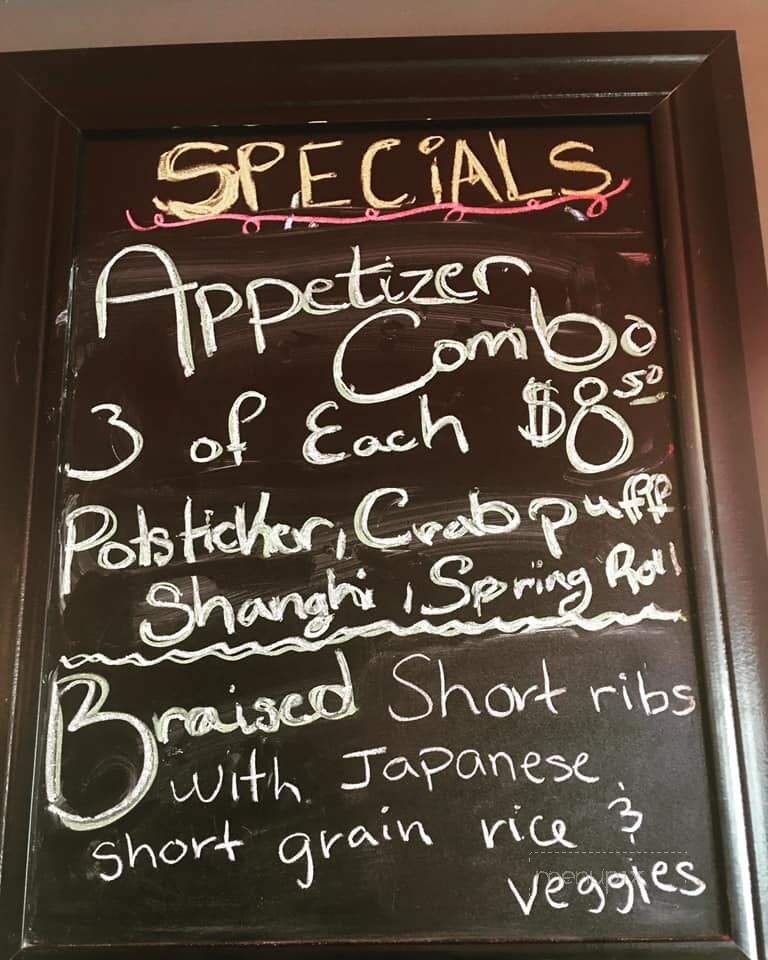 SPECiALS
Appetizer
Combo
3 of Each $8.50
Potsticker, Crab puff
Shanghi, Spring Roll
Braised Short ribs
with Japanese
short grain rice &
veggies
menupix